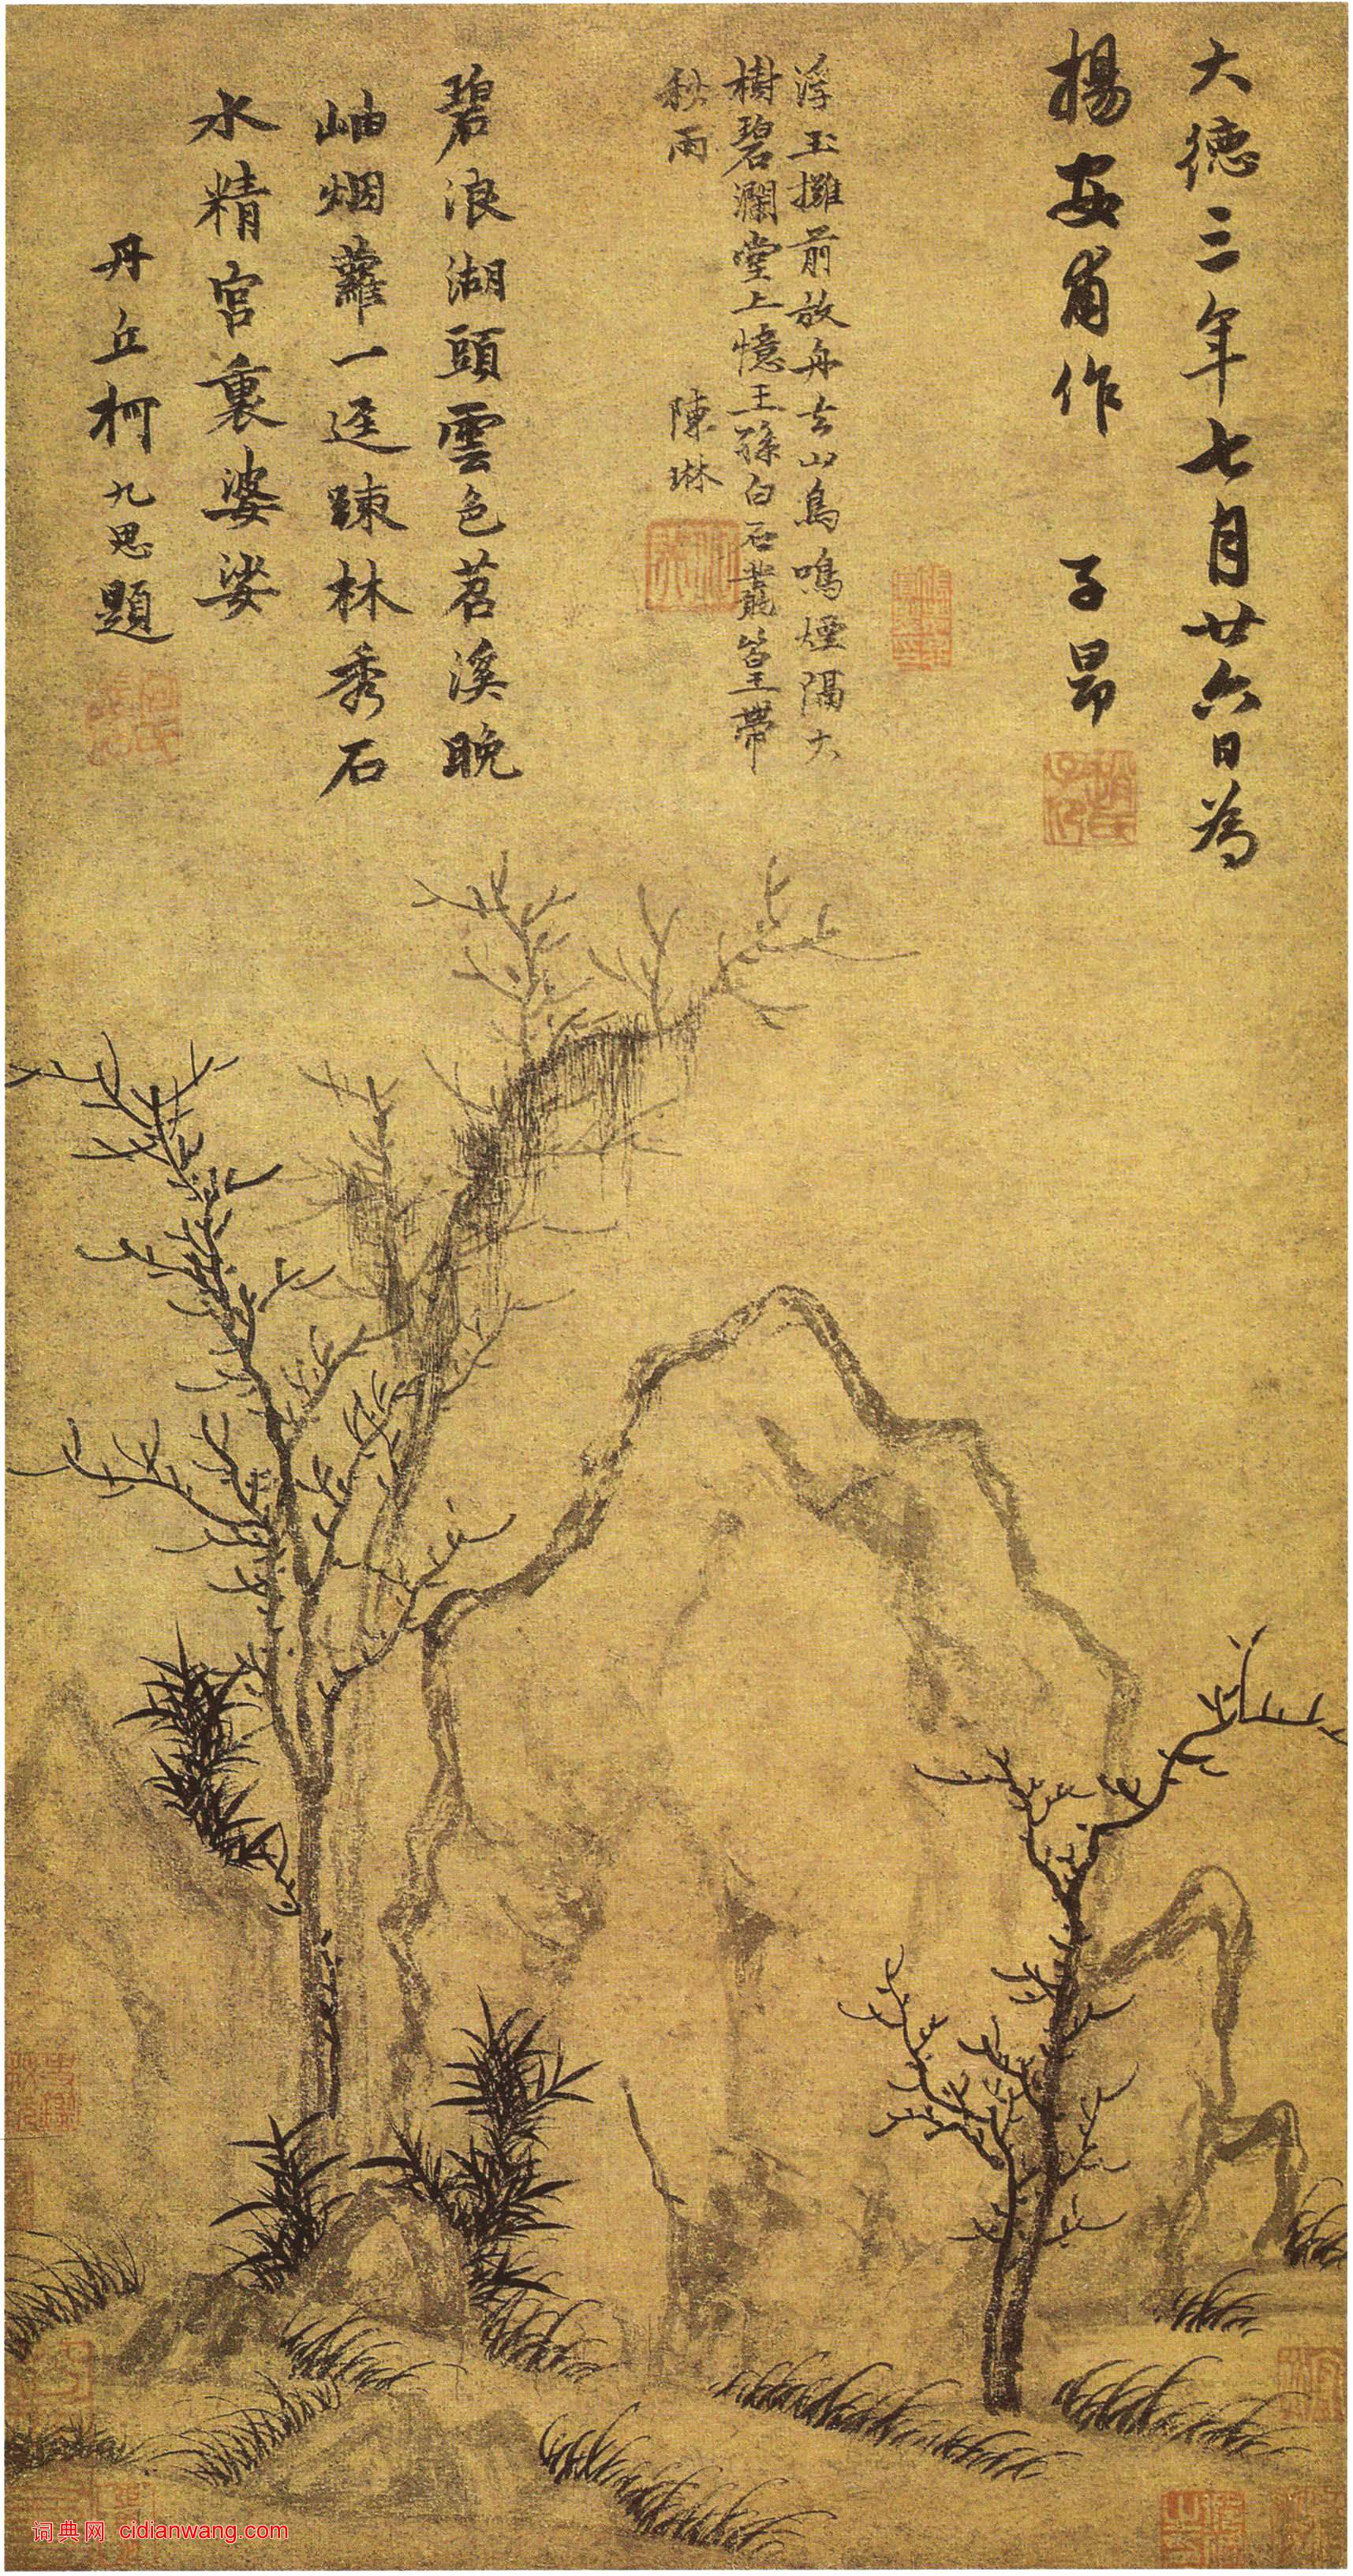 大德三年七月廿六日為
楊安甫作 子昂
浮玉攤前放舟去山鳥鳴煙隔大
樹碧瀾堂上憶王孫白石叢篁帶
秋雨 陳琳
碧浪湖頭雲色苕溪晚
岫烟蘿一逕疎林秀石
水精宮裏婆娑
丹丘柯九思題
趙氏子昂
词典网 cidianwang.com